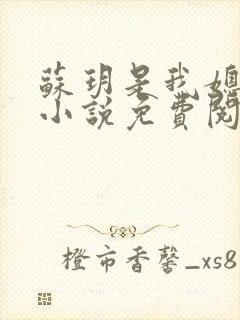 蘇玥是我媳
小說免費閱
橙市香馨_xs8